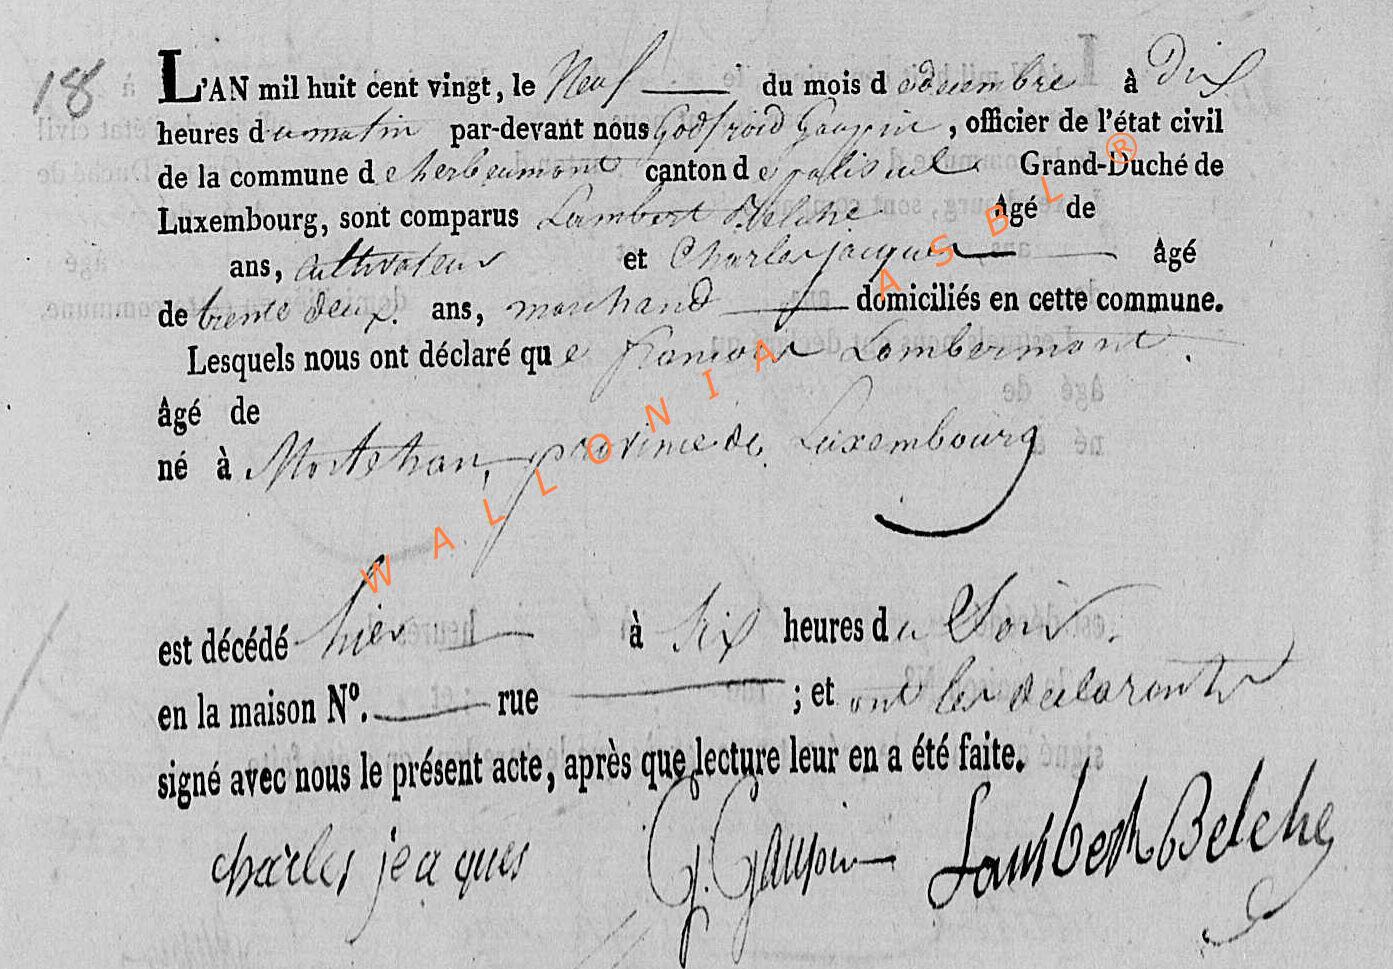 18
L'AN mil huit cent vingt, le Neuf du mois d edecembre à Dix
heures du matin par-devant nous Godfroid Gaupin, officier de l'état civil
de la commune de herbeumont canton de paliseul Grand-Duché de
Luxembourg, sont comparus Lambert Belche Âgé de
ans, cultivateur et Charles jacques âgé
de trente deux ans, marchand domiciliés en cette commune.
Lesquels nous ont déclaré que françois Lambermont.
âgé de
né à Mortehan, province de Luxembourg
est décédé hier à Six heures du Soir.
en la maison Nº. rue ; et ont les declarants
signé avec nous le présent acte, après que lecture leur en a été faite.
charles jeaques G. Gaupin Lambert Belche
WALLONIA ASBL ®